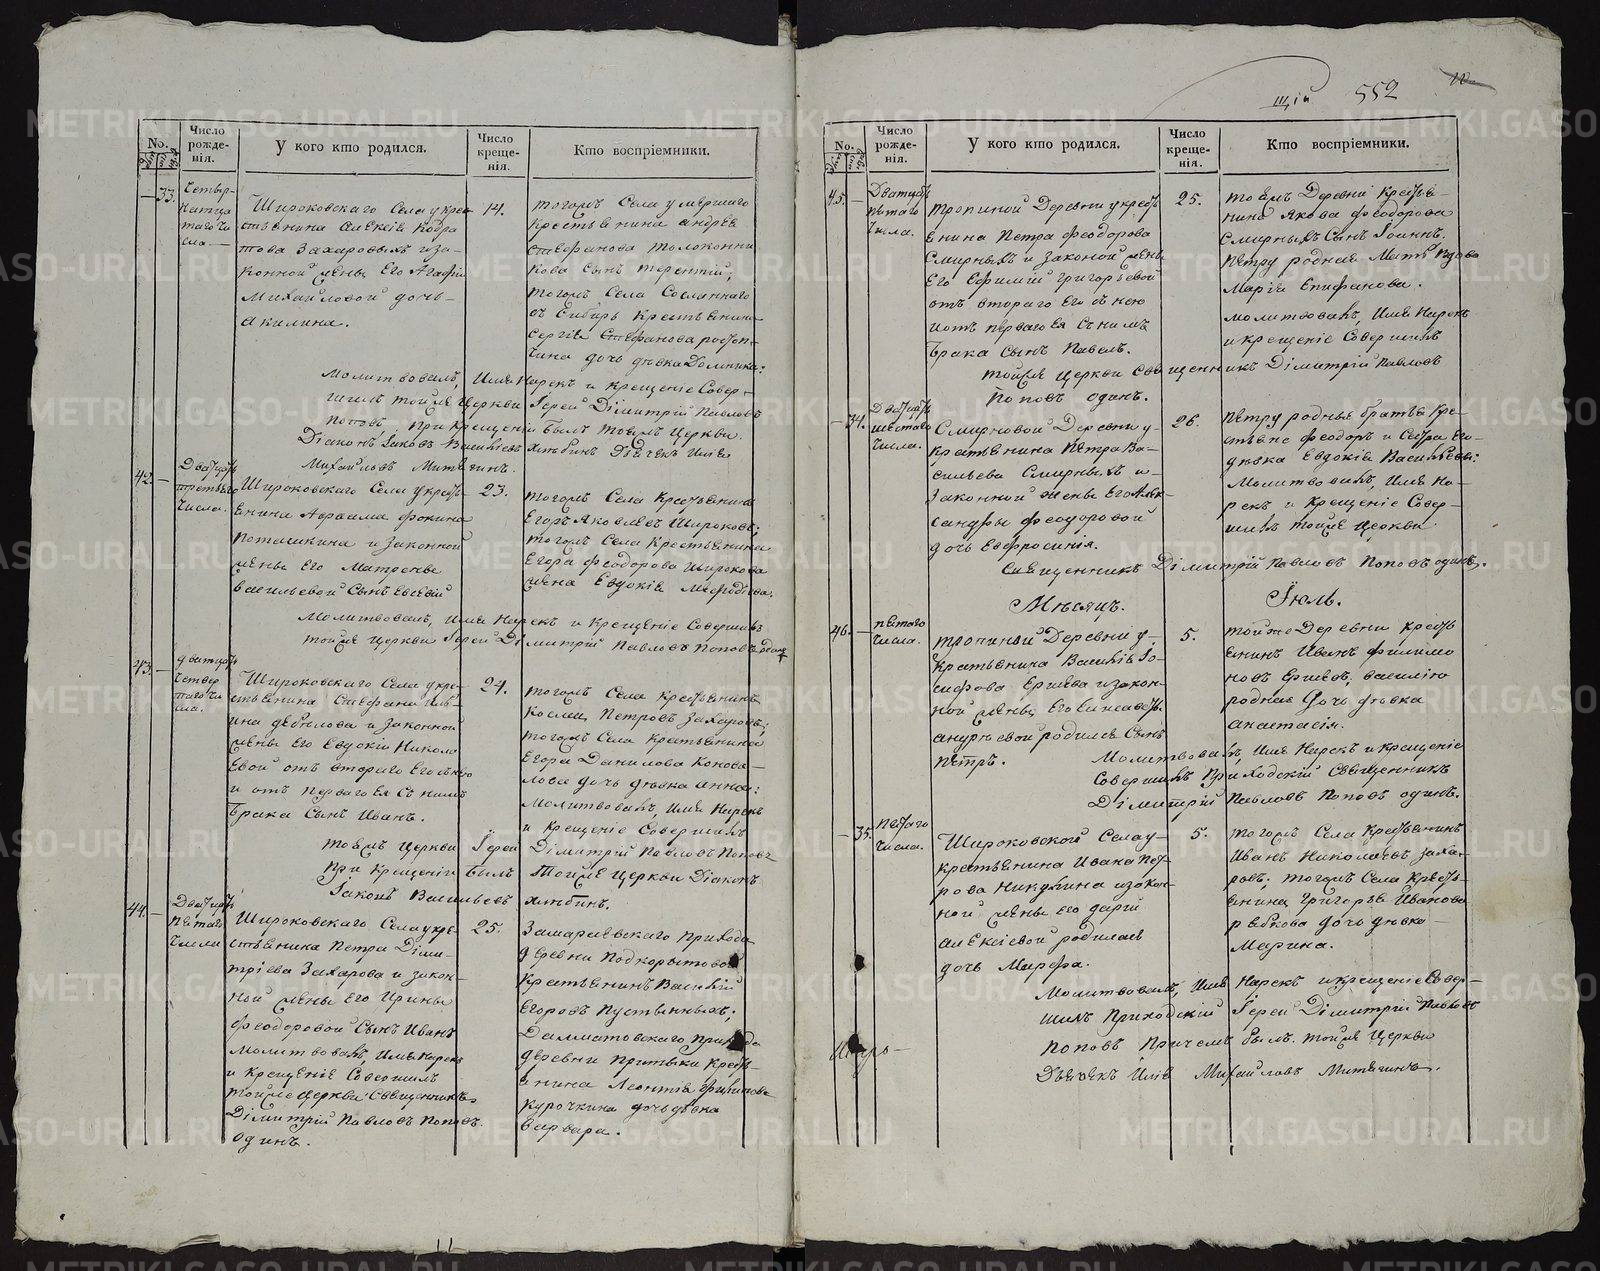 No.
Число рожде-нія.
У кого кто родился.
Число креще-нія.
Кто воспріемники.
33.
Четыр-
натца
таго чи
сла.
Широковскаго Села у крес
тьянина Алексія Кодра
това Захаровыхъ и за-
конной жены Его Агафіи
Михайловой дочь
Акилина.
14.
тогожъ Села умершаго
крестьянина Андрея
Стефанова Толоконни
кова Сынъ Терентій;
тогожъ Села Сосланнаго
въ Сибирь крестьянина
Сергія Стефанова
дочь девка Домника:
Молитвовалъ, Имя Нарекъ и Крещеніе Совер-
шилъ тойже Церкви Іерей Димитрій Павловъ
Поповъ, При Крещеніи былъ тоежъ Церкви
Діаконъ Іаковъ Васильевъ Хлыбинъ Дьячекъ Илья
Михайловъ Митягинъ.
42.
Дватцать
третьяго
числа.
Широковскаго Села у кресть-
янина Авраама Фокина
Поташкина и Законной
жены Его Матроны
Васильевой Сынъ Евсевій
23.
тогожъ Села Крестьянинъ
Егоръ Яковлевъ Широковъ;
тогожъ Села Крестьянина
Егора Феодорова Широкова
жена Евдокія Мефодіева:
Молитвовалъ, Имя Нарекъ и Крещеніе Совершилъ
тойже Церкви Іерей Димитрій Павловъ Поповъ одинъ
43.
дватцать
четвер
таго чи
сла.
Широковскаго Села у кре-
стьянина Стефана Иль-
ина Дебелова и Законной
жены Его Евдокіи Никола
евой отъ втораго Его съ нею
и отъ перваго Ея съ нимъ
брака Сынъ Иванъ.
24.
тогожъ Села Крестьянинъ
Косма Петровъ Захаровъ;
тогожъ Села Крестьянина
Егора Данилова Конова-
лова дочь девка Анна:
Молитвовалъ, Имя Нарекъ
и Крещеніе Совершилъ
тоежъ Церкви Іерей Димитрій Павловъ Поповъ
При Крещеніи Былъ Тойже Церкви Діаконъ
Іаковъ Васильевъ Хлыбинъ.
44.
Дватцать
пятаго
числа
Широковскаго Села у кре-
стьянина Петра Дими-
тріева Захарова и Закон-
ной жены Его Ирины
Феодоровой Сынъ Иванъ
Молитвовалъ Имя Нарекъ
и Крещеніе Совершилъ
тойже Церкви Священникъ
Димитрій Павловъ Поповъ
одинъ.
25.
Замараевскаго прихода
деревни Подкорытовой
Крестьянинъ Василій
Егоровъ Пустынныхъ;
Далматовскаго прихода
деревни Притыки Кресть-
янина Леонтія Филипова
Курочкина дочь девка
Варвара.
щій 552
No.
Число рожде-нія.
У кого кто родился.
Число креще-нія.
Кто воспріемники.
45.
Дватцать
пятаго
числа.
Тропиной Деревни у кресть
янина Петра Феодорова
Смирныхъ и Законой жены
Его Ефиміи Григорьевой
отъ втораго Его съ нею
и отъ перваго Ея съ нимъ
Брака Сынъ Павелъ.
25.
тоежъ Деревни Крестья-
нина Якова Феодорова
Смирныхъ Сынъ Іоаннъ.
Петру родная Мать вдова
Марія Епифанова.
Молитвовалъ, Имя Нарекъ
и крещеніе Совершилъ
тойже Церкви Священникъ Димитрій Павловъ
Поповъ одинъ.
34.
Дватцать
шестаго
числа.
Смирновой Деревни у
крестьянина Петра Ва-
сильева Смирныхъ и
Законной жены Его Алек-
сандры Феодоровой
дочь Евфросинія.
26.
Петру родные братья кре-
стьяне Феодоръ и Сестра Его
девка Евдокія Васильевы:
Молитвовалъ, Имя На-
рекъ и Крещеніе Совер-
шилъ тойже Церкви
Священникъ Димитрій Павловъ Поповъ одинъ.
Месяцъ. Іюль.
46.
пятаго
числа.
Тропиной Деревни у
Крестьянина Василія Іо-
сифова Ершева и закон-
ной жены Его Елисаветы
Андреевой родился Сынъ
Петръ.
5.
тойже Деревни Кресть
янинъ Иванъ Филимо
новъ Ершевъ, Василію
родная дочь девка
Анастасія.
Молитвовалъ, Имя Нарекъ и крещеніе
Совершилъ Приходскій Священникъ
Димитрій Павловъ Поповъ одинъ.
35.
пятаго
числа.
Широковской Села у
крестьянина Ивана Пет-
рова Никулина и закон-
ной жены его Даріи
Алексіевой родилась
дочь Марфа.
5.
тогожъ Села Крестьянинъ
Иванъ Николаевъ Заха-
ровъ; тогожъ Села Кресть-
янина Григорья Иванова
Рябкова дочь девка
Марина.
Молитвовалъ, Имя Нарекъ и крещеніе Совер-
шилъ Приходскій Іерей Димитрій Павловъ
Поповъ Причемъ былъ тойже Церкви
Дьячекъ Илія Михайловъ Митягинъ.